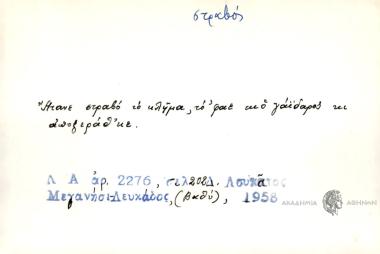 στραβός
Ἤτανε στραβό τὸ κλῆμα, τό 'φαε κι ὁ γάϊδαρος κι
ἀπογεράθ'κε.
Λ Α ἀρ. 2276, σελ 202 Δ. Λουκᾶτος
Μεγανήσι-Λευκάδος, (Βαθύ), 1958
ΑΚΑΔΗΜΙΑ ΑΘΗΝΩΝ